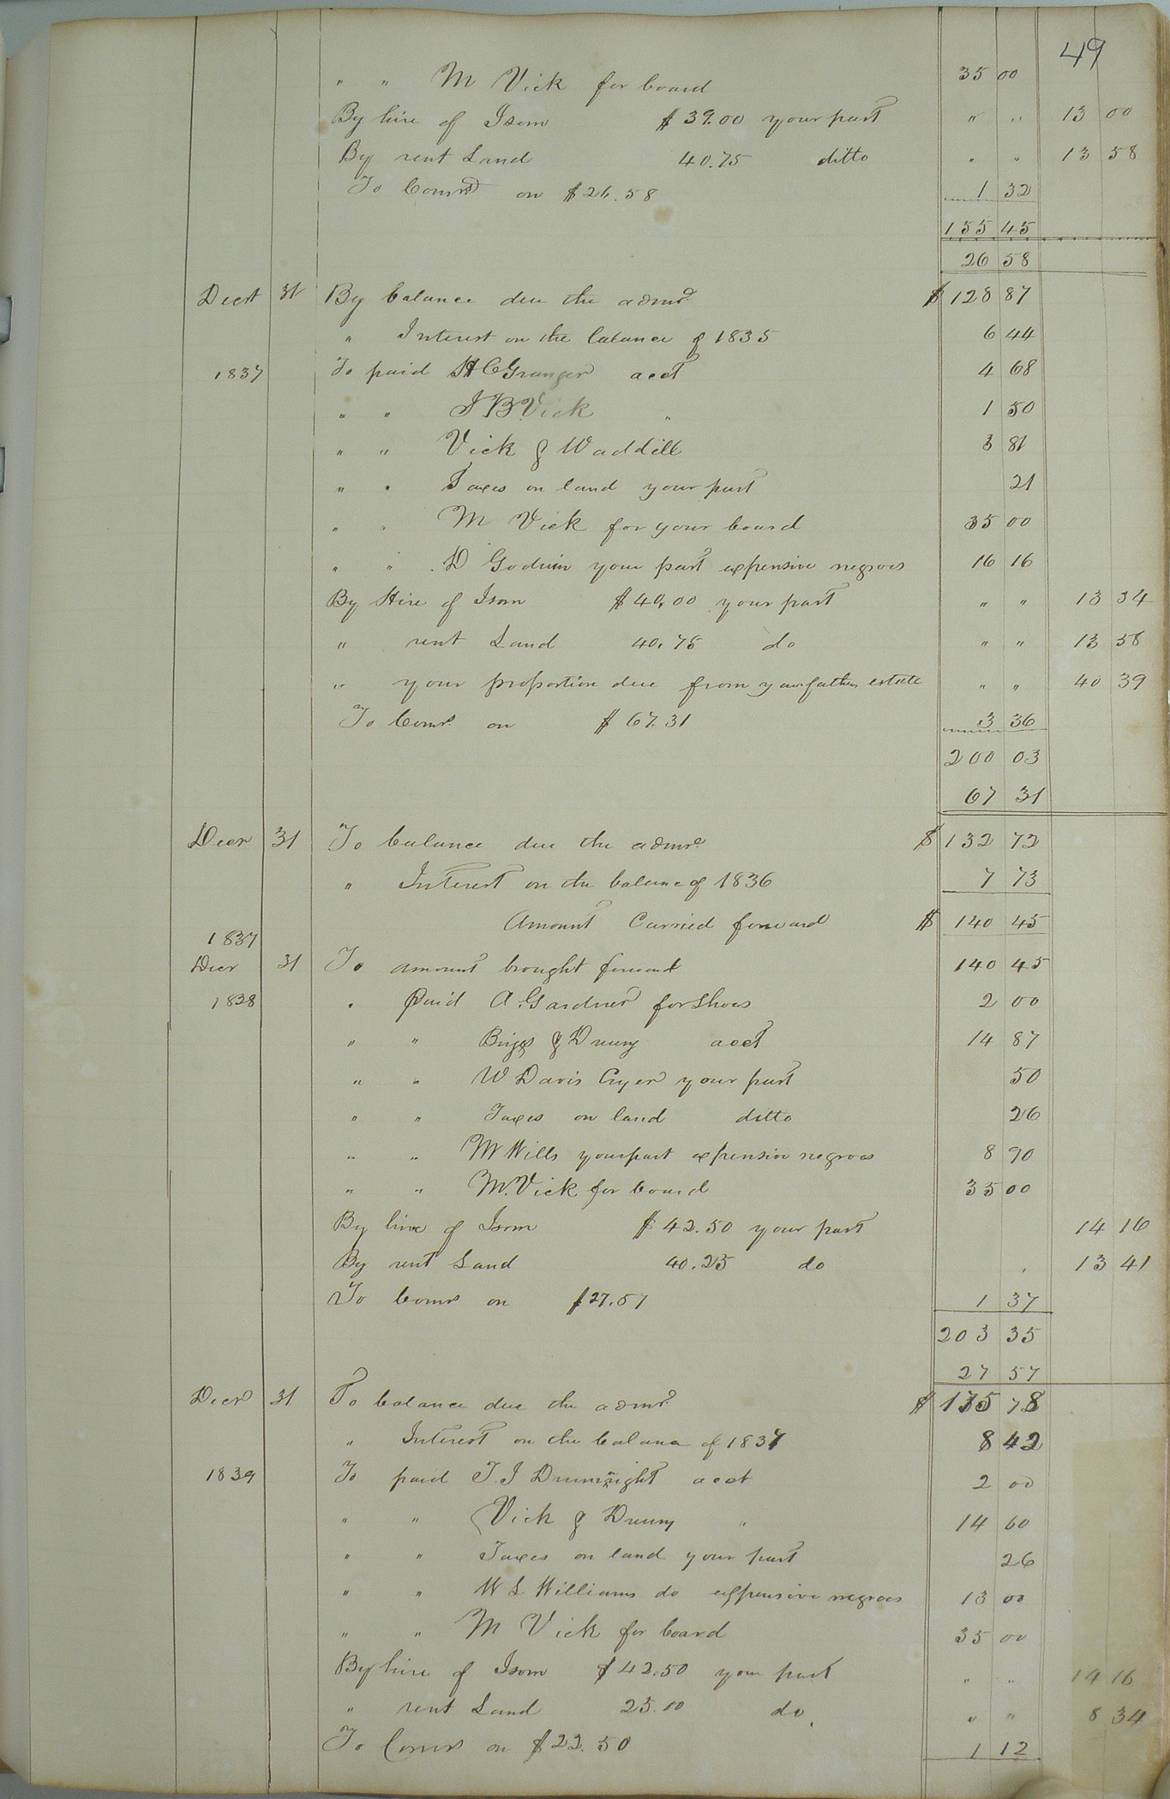 49
" " M Vick for board 35 00
By hire of Isom $39.00 your part " " 13 00
By rent Land 40.75 ditto " " 13 58
To Comrs on $26.58 1 32
155 45
26 58
Decr 31 By balance due the admr $128 87
" Interest on the balance of 1835 6 44
1837 To paid H C Granger acct 4 68
" " J B Vick " 1 50
" " Vick & Waddill 3 81
" " Taxes on land your part 21
" " M Vick for your board 35 00
" " D Godwin your part expensive negroes 16 16
By Hire of Isom $40,00 your part " " 13 34
" rent Land 40.75 do " " 13 58
" your proportion due from your fathers estate " " 40 39
To Comrs on $67.31 3 36
200 03
67 31
Decr 31 To balance due the admr $132 72
" Interest on the balance of 1836 7 73
Amount Carried forward $140 45
1837
Decr 31 To amount brought forward 140 45
1838 " paid A. Gardner for Shoes 2 00
" " Briggs & Drewry acct 14 87
" " W Davis Cryer your part 50
" " Taxes on land ditto 26
" " M Wills your part expensive negroes 8 90
" " M. Vick for board 35 00
By hire of Isom $42.50 your part 14 16
By rent Land 40.25 do " 13 41
To Comrs on $27.57 1 37
203 35
27 57
Decr 31 To balance due the admr $175 78
" Interest on the balance of 1837 8 42
1839 To paid T. J Drumright acct 2 00
" " Vick & Drewry " 14 60
" " Taxes on land your part 26
" " W L Williams do expensive negroes 13 00
" " M Vick for board 35 00
By hire of Isom $42.50 your part " " 14 16
" rent Land 25.00 do. " " 8 34
To Comrs on $22.50 1 12